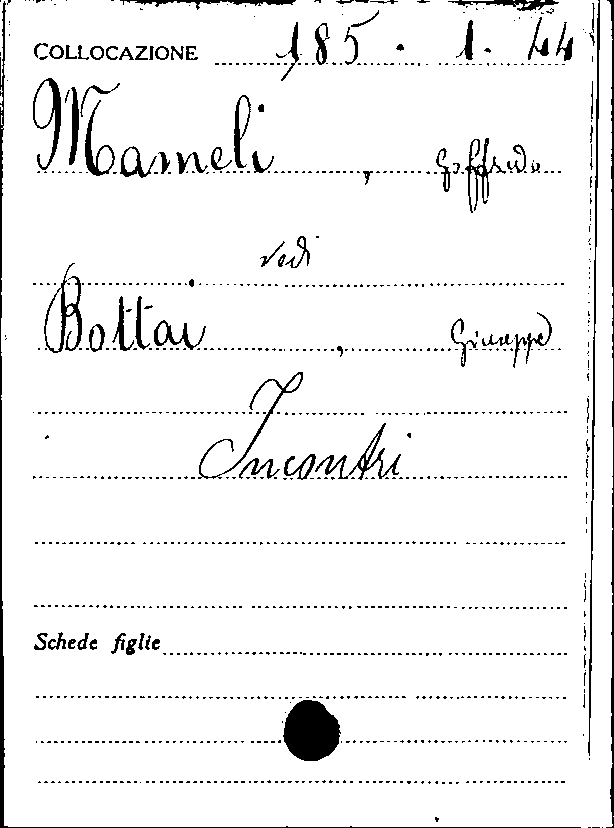 COLLOCAZIONE 185 . 1. 44
Mameli , Goffredo
vedi
Bottai , Giuseppe
Incontri
Schede figlie